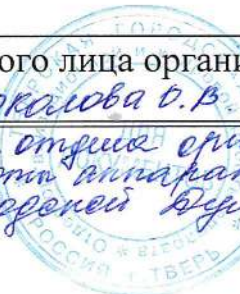 ого лица органи
околова О.В
отдела орг
оты аппарат
одской Дум
РОССИЯ г ТВЕРЬ